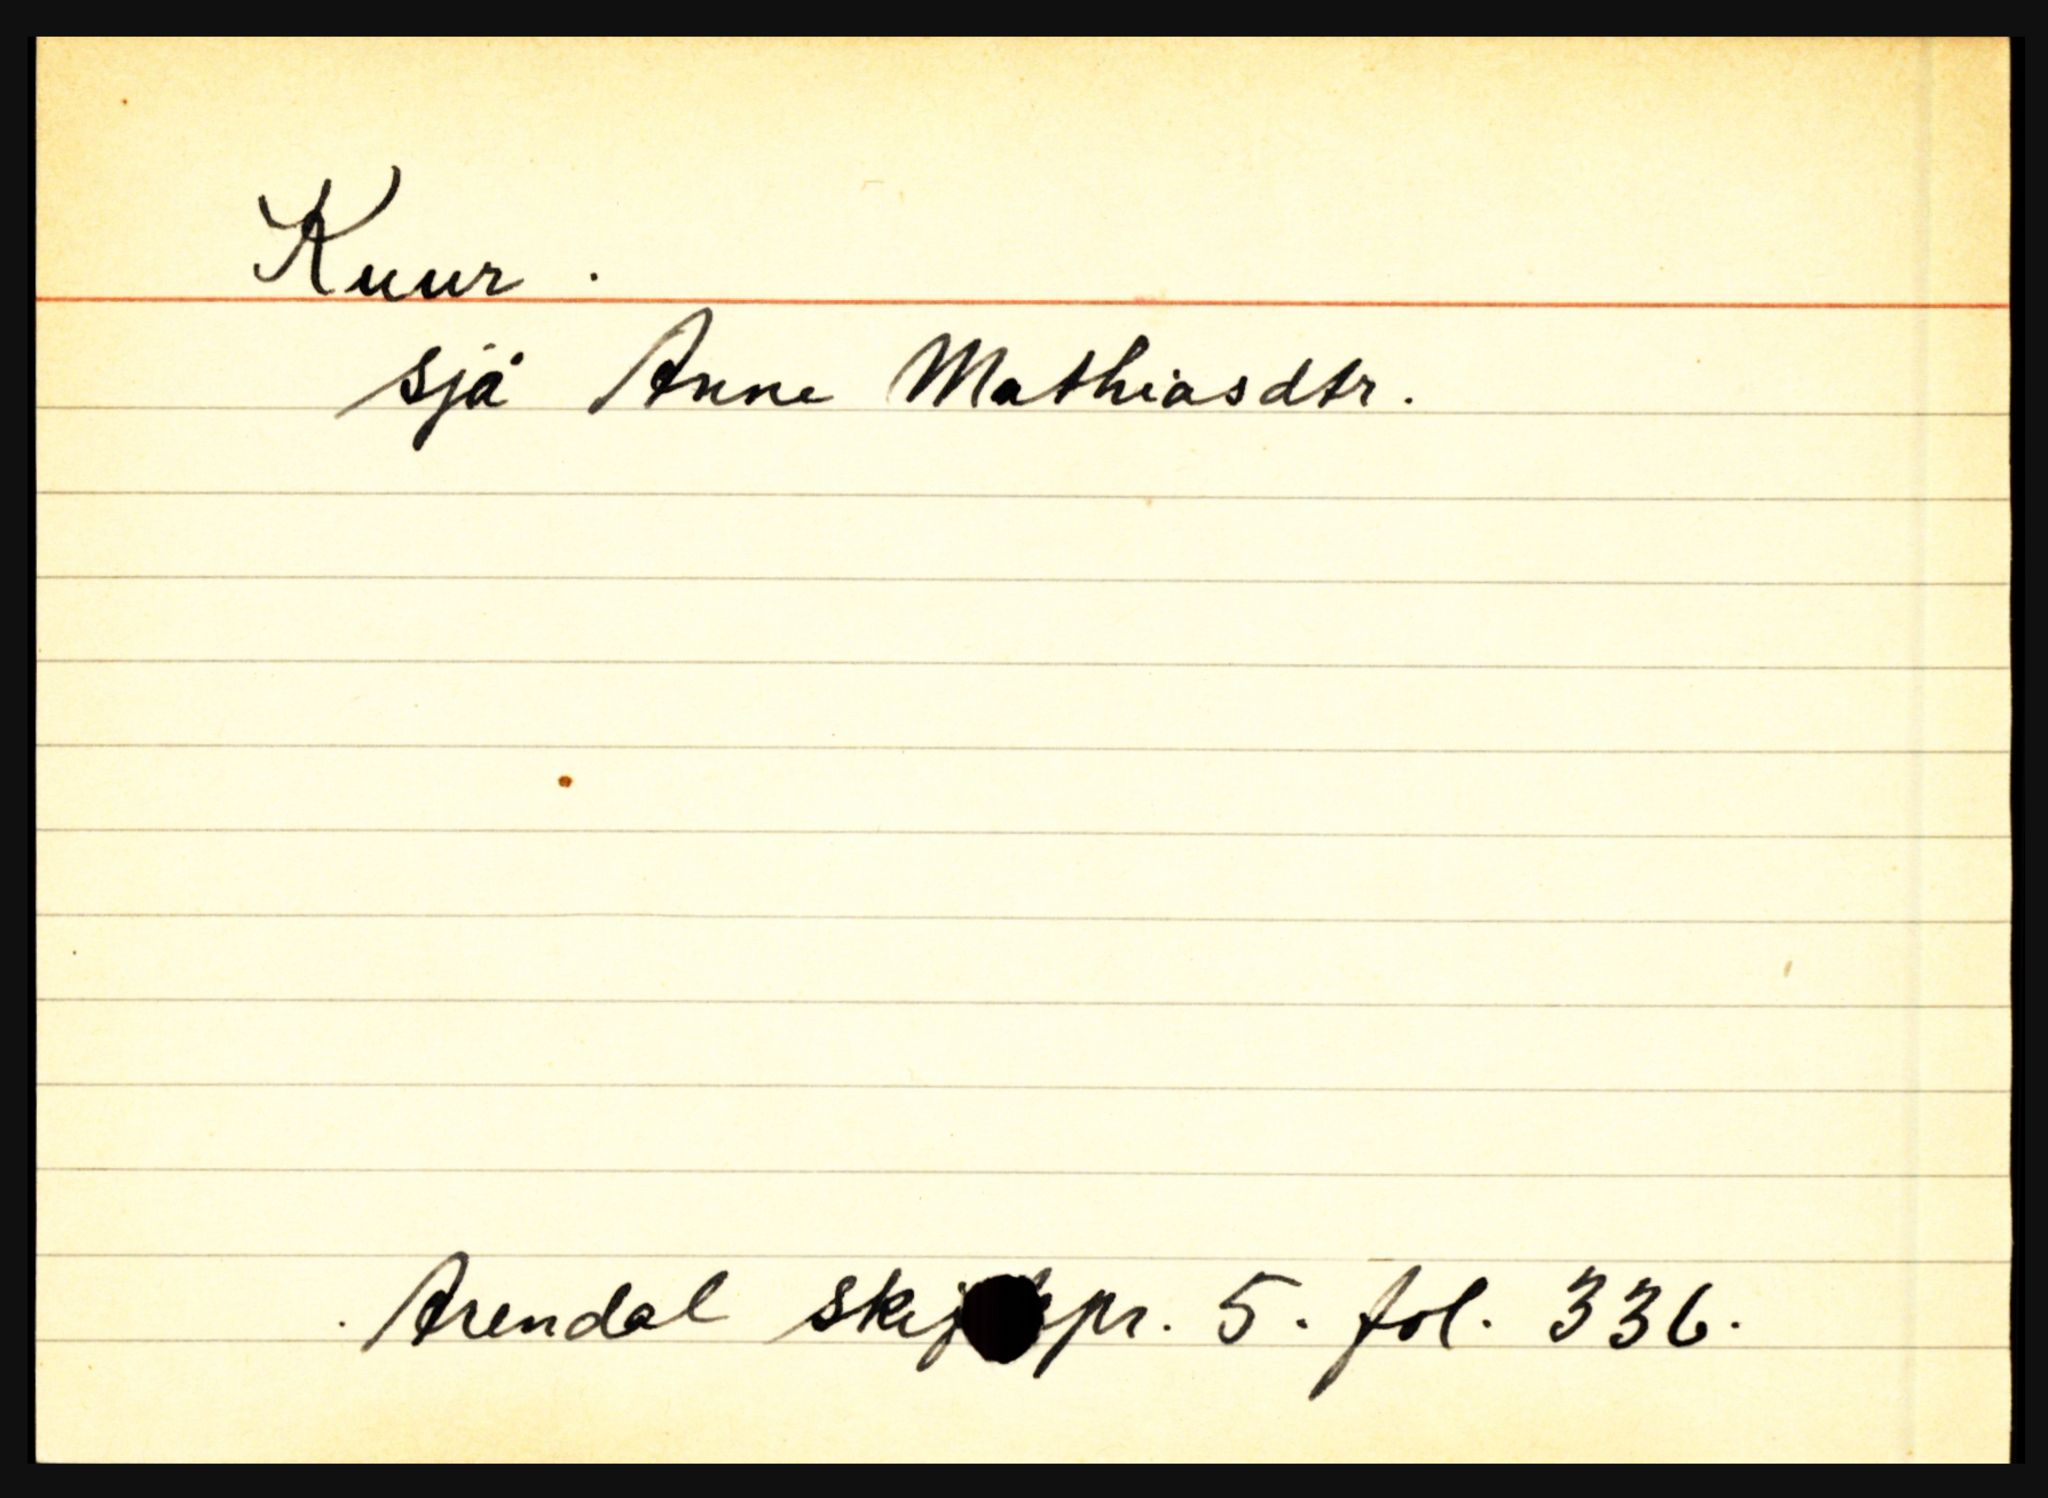 Kuur.
sjå Anne Mathiasdtr.
Arendal pr. 5. fol. 336.